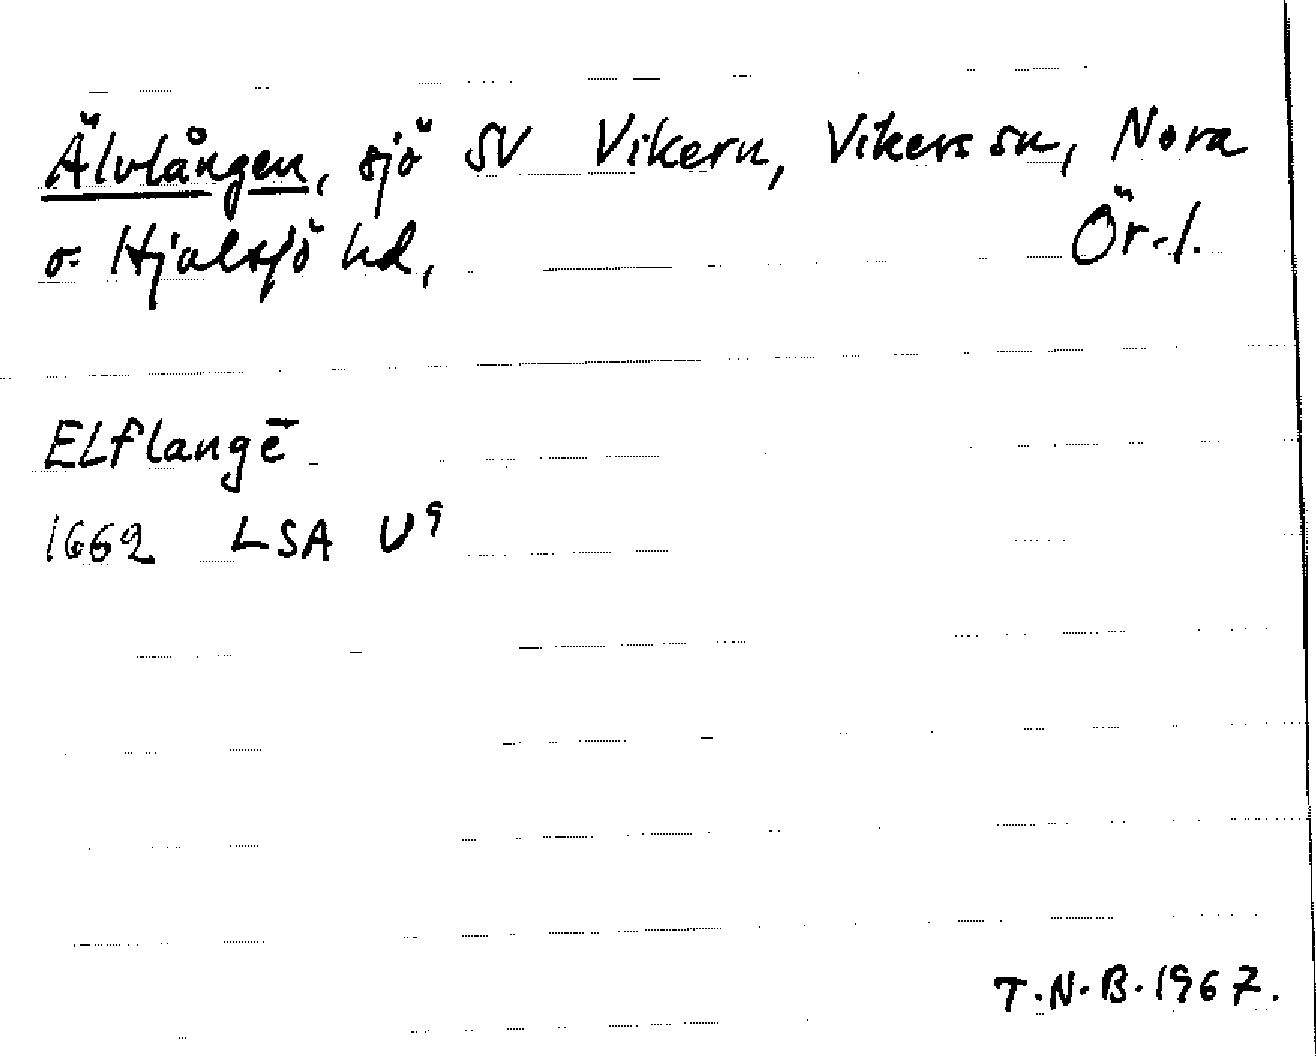 Älvlången, sjö SV Vikern, Vikers sn, Nora
o. Hjulsjö hd, Ör.l.
ELflangē
1662 LSA U⁹
T.N.B. 1967.